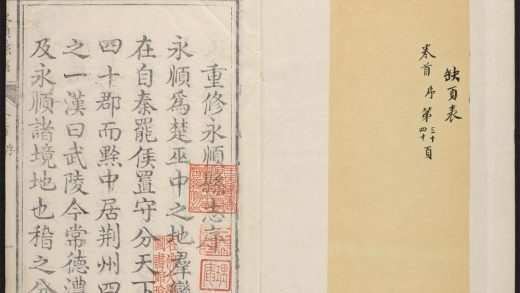 缺頁表
卷首 序 第三十 四十 頁
重修永順縣志序
永順爲楚巫中之地羣蠻
在自秦罷侯置守分天下
四十郡而黔中居荆州四
之一漢曰武陵今常德澧
及永順諸境地也稽之分